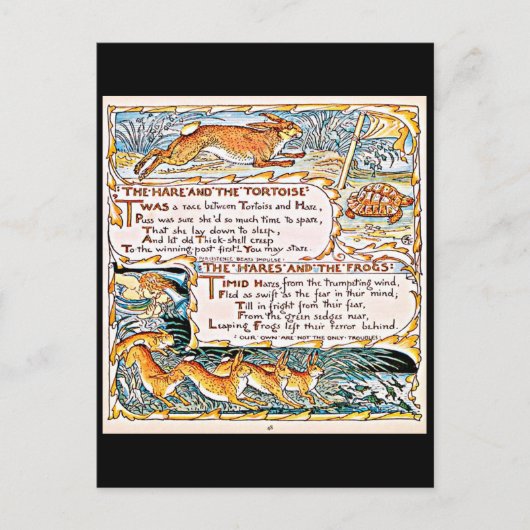 THE·HARE·AND·THE·TORTOISE·
'TWAS a race between Tortoise and Hare,
Puss was sure she'd so much time to spare,
That she lay down to sleep,
And let old Thick-shell creep
To the winning-post first!—You may stare.
PERSISTENCE·BEATS·IMPULSE·
THE·HARES·AND·THE·FROGS:
TIMID Hares, from the trumpeting wind,
Fled as swift as the fear in their mind;
Till in fright from their fear,
From the green sedges near,
Leaping Frogs left their terror behind.
OUR·OWN·ARE·NOT·THE·ONLY·TROUBLES·
48